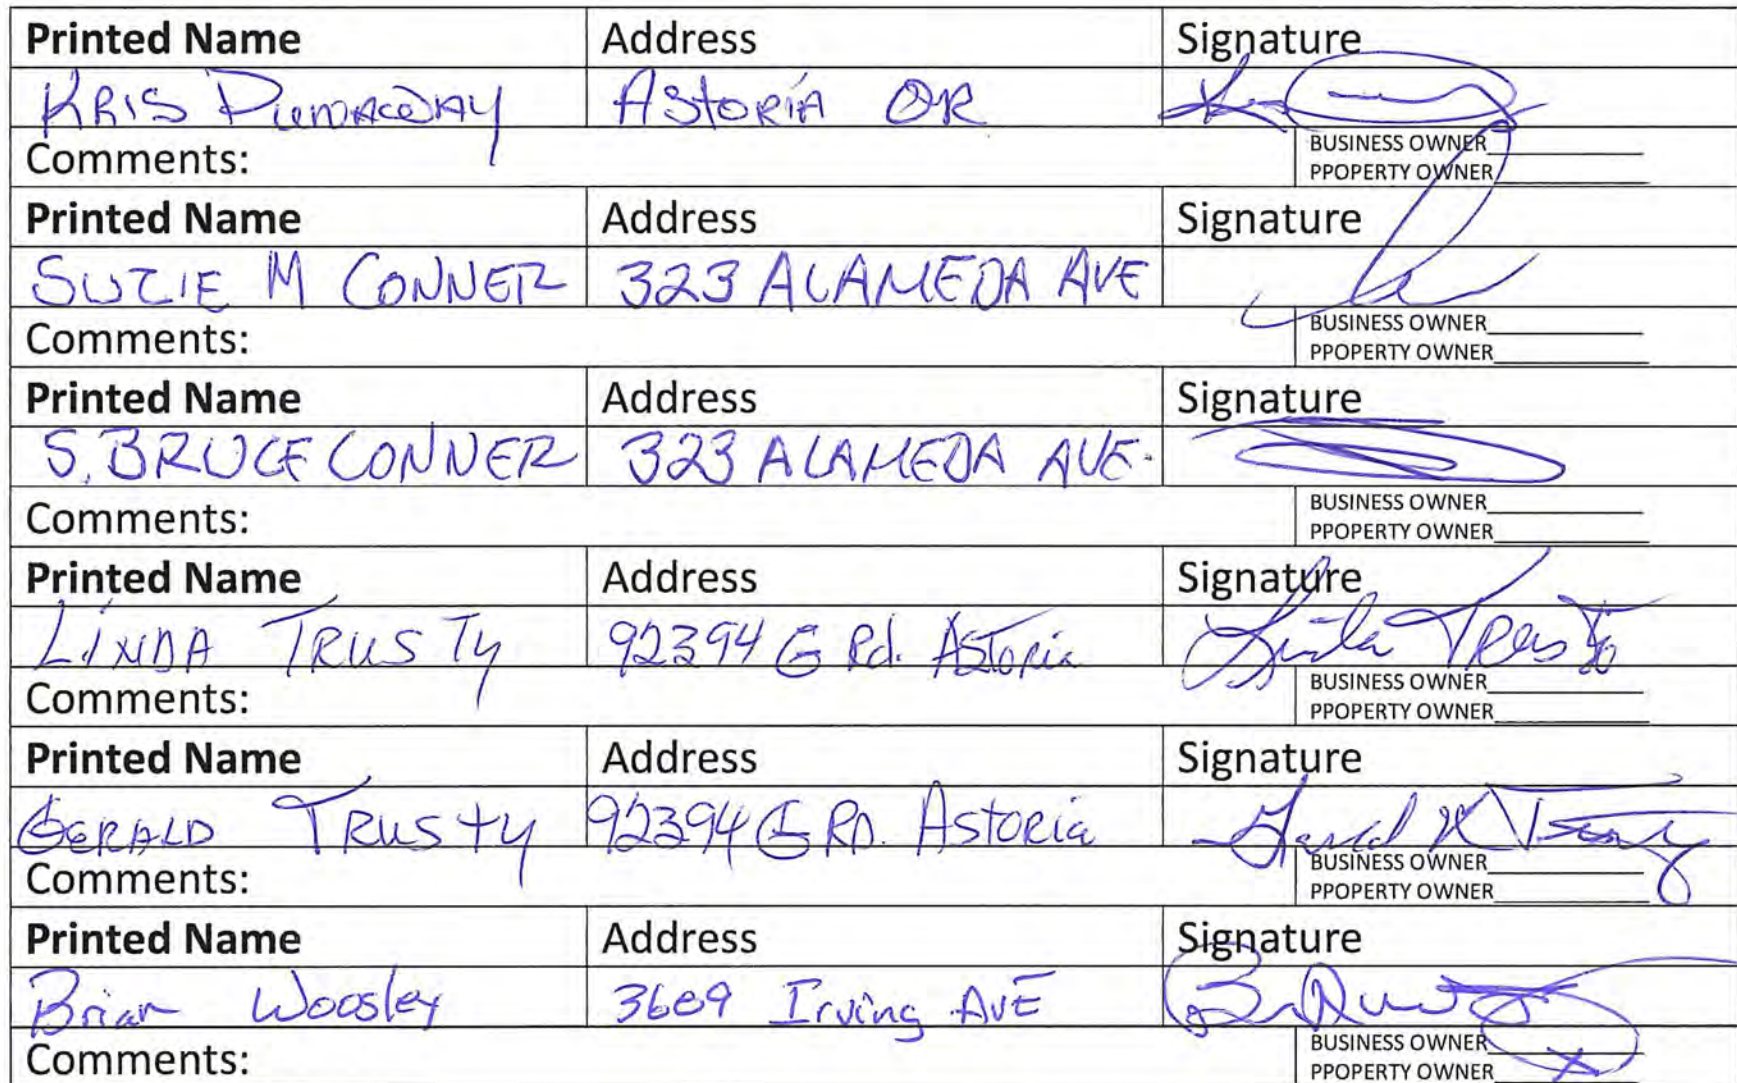 Printed Name Address Signature
KRIS Astoria OR
Comments: BUSINESS OWNER
PPOPERTY OWNER
Printed Name Address Signature
SUZIE M CONNER 323 ALAMEDA AVE
Comments: BUSINESS OWNER
PPOPERTY OWNER
Printed Name Address Signature
S. BRUCE CONNER 323 ALAMEDA AVE.
Comments: BUSINESS OWNER
PPOPERTY OWNER
Printed Name Address Signature
LINDA TRUSTY 92394 G Rd. Astoria Linda Trusty
Comments: BUSINESS OWNER
PPOPERTY OWNER
Printed Name Address Signature
GERALD TRUSTY 92394 G RD. Astoria Gerald Trusty
Comments: BUSINESS OWNER
PPOPERTY OWNER
Printed Name Address Signature
Brian Woosley 3609 Irving AVE
Comments: BUSINESS OWNER
PPOPERTY OWNER X